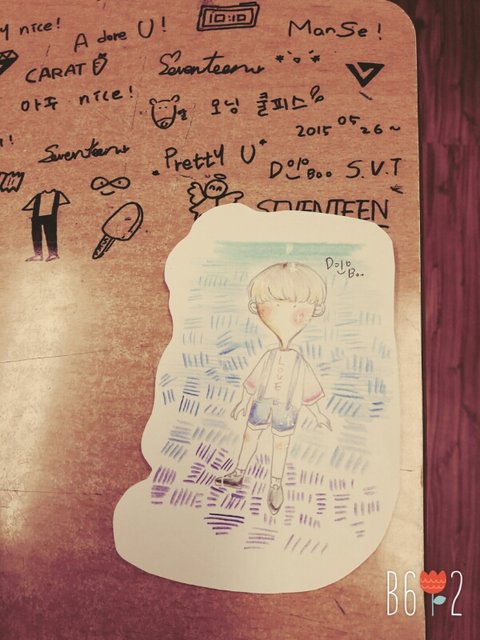 y nice!
A dore U!
10:10
ManSe!
CARAT
Seventeen
아주 nice!
오닝 쿨피스
2015 05 26~
Seventeen
Pretty U
Dojo Boo
S.V.T
SEVENTEEN
Dojo
Boo
B612